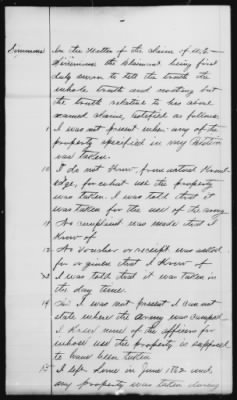 Simmons In the Matter of the claim of W. E.
Simmons the Claimant being first
duly sworn to tell the truth the
whole truth and nothing but
the truth relative to his above
named claim, testified as follows
1 I was not present when any of the
property specified in my Petition
was taken.
10 I do not know, from actual knowl-
edge, for what use the property
was taken. I was told that it
was taken for the use of the army
11 No complaint was made that I
know of
12 No voucher or receipt was asked
for or given that I know of
13 I was told that it was taken in
the day time.
14 I was not present I can not
state where the army was camped
I knew none of the officers for
whose use the property is supposed
to have been taken
15 I left home in June 1862 and
any property was taken during